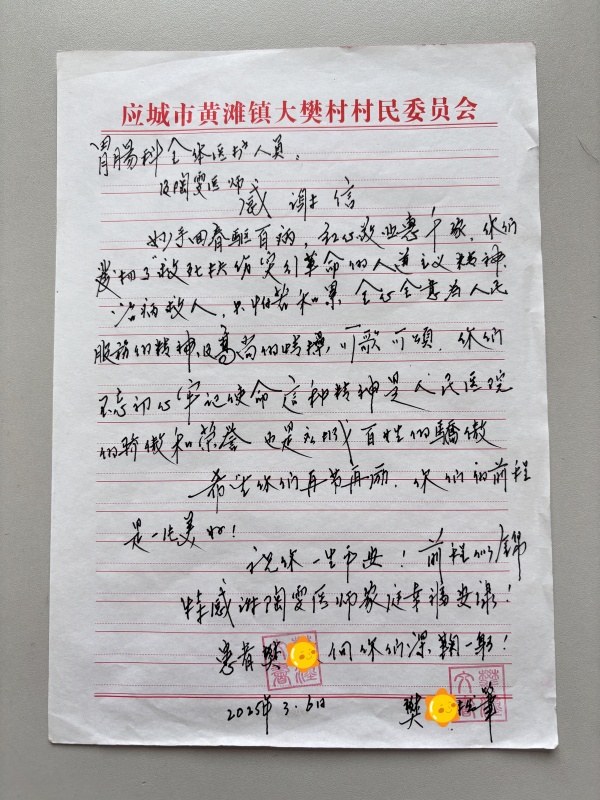 应城市黄滩镇大樊村村民委员会
胃肠科全体医护人员。
及陶雯医师
感谢信
妙手回春驱百病，红心救世惠千家，你们
发扬了"救死扶伤实行革命的人道主义精神、
治病救人，不怕苦和累，全心全意为人民
服务的精神及高尚的情操，可歌可颂，你们
不忘初心牢记使命这种精神是人民医院
的骄傲和荣誉也是应城百姓的骄傲
希望你们再节再励，你们的前程
是一片美好！
祝你一生平安！前程似锦
特感谢陶雯医师家庭幸福安康！
患者樊 向你们深鞠一躬！
2025年3.6日
樊 笔